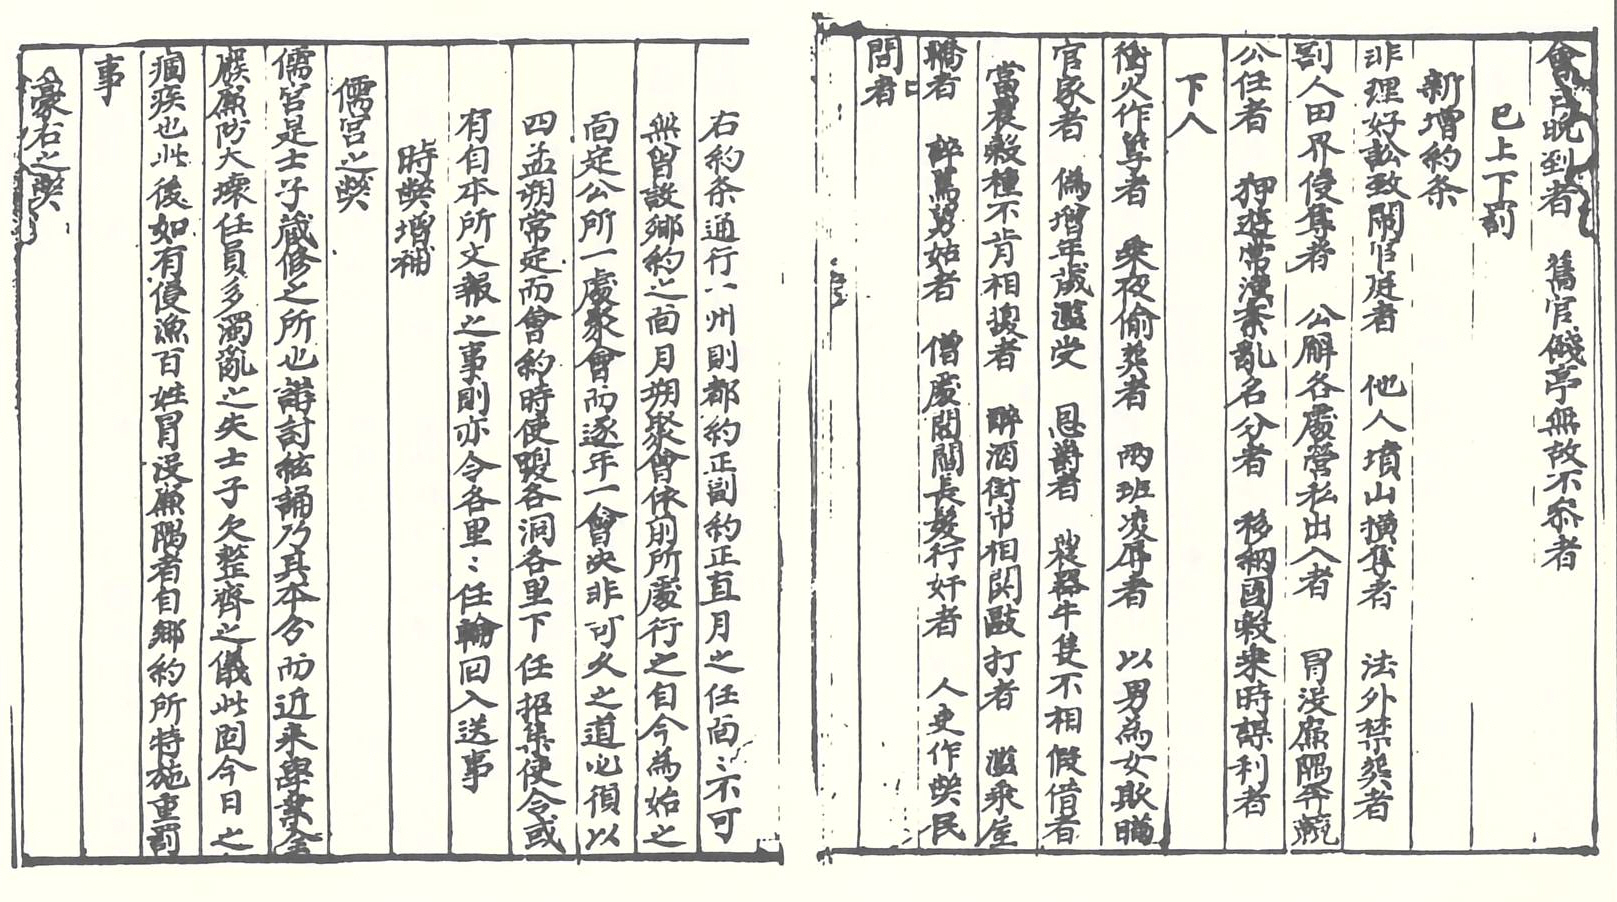 會日晩到者　舊官餞亭無故不參者
已上下罰
新增約条
非理好訟致鬧官庭者　他人墳山攘奪者　法外禁葬者
割人田界侵尊者　公廨各處營私出入者　冐没廉隅奔競
公任者　狎遊常漢紊亂名分者　移納國穀乘時謀利者
下人
衝火作挐者　乘夜偷葬者　兩班凌辱者　以男為女欺瞞
官家者　僞增年歲濫受　恩爵者　農器牛隻不相假借者
當農穀種不肯相換者　醉酒街市相鬪敺打者　濫乘屋
轎者　詬罵舅姑者　僧處閭閻長髮行奸者　人吏作獘民
間者
右約条通行一州則都約正副約正直月之任面〻不可
無曾設鄉約之面月朔聚會依前所處行之自今為始之
面定公所一處聚會而逐年一會决非可久之道必須以
四孟朔常定而會約時使嘍各洞各里下任招集使令或
有自本所文報之事則亦令各里〻任輪回入送事
時獘增補
儒宮之獘
儒宮是士子藏修之所也講討絃誦乃其本分而近來學業全
廢廉防大壞任員多濁亂之失士子欠整齊之儀此固今日之
痼疾也此後如有侵漁百姓冐没廉隅者自鄉約所特施重罰
事
豪右之獘